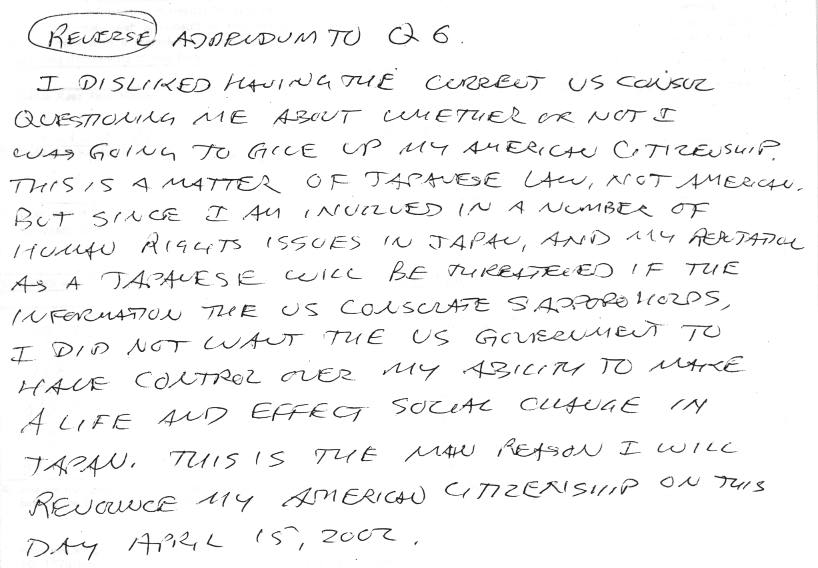 REVERSE ADDENDUM TO Q 6.
I DISLIKED HAVING THE CURRENT US CONSUL
QUESTIONING ME ABOUT WHETHER OR NOT I
WAS GOING TO GIVE UP MY AMERICAN CITIZENSHIP.
THIS IS A MATTER OF JAPANESE LAW, NOT AMERICAN.
BUT SINCE I AM INVOLVED IN A NUMBER OF
HUMAN RIGHTS ISSUES IN JAPAN, AND MY REPUTATION
AS A JAPANESE WILL BE THREATENED IF THE
INFORMATION THE US CONSULATE SAPPORO HOLDS,
I DID NOT WANT THE US GOVERNMENT TO
HAVE CONTROL OVER MY ABILITY TO MAKE
A LIFE AND EFFECT SOCIAL CHANGE IN
JAPAN. THIS IS THE MAIN REASON I WILL
RENOUNCE MY AMERICAN CITIZENSHIP ON THIS
DAY APRIL 15, 2002.